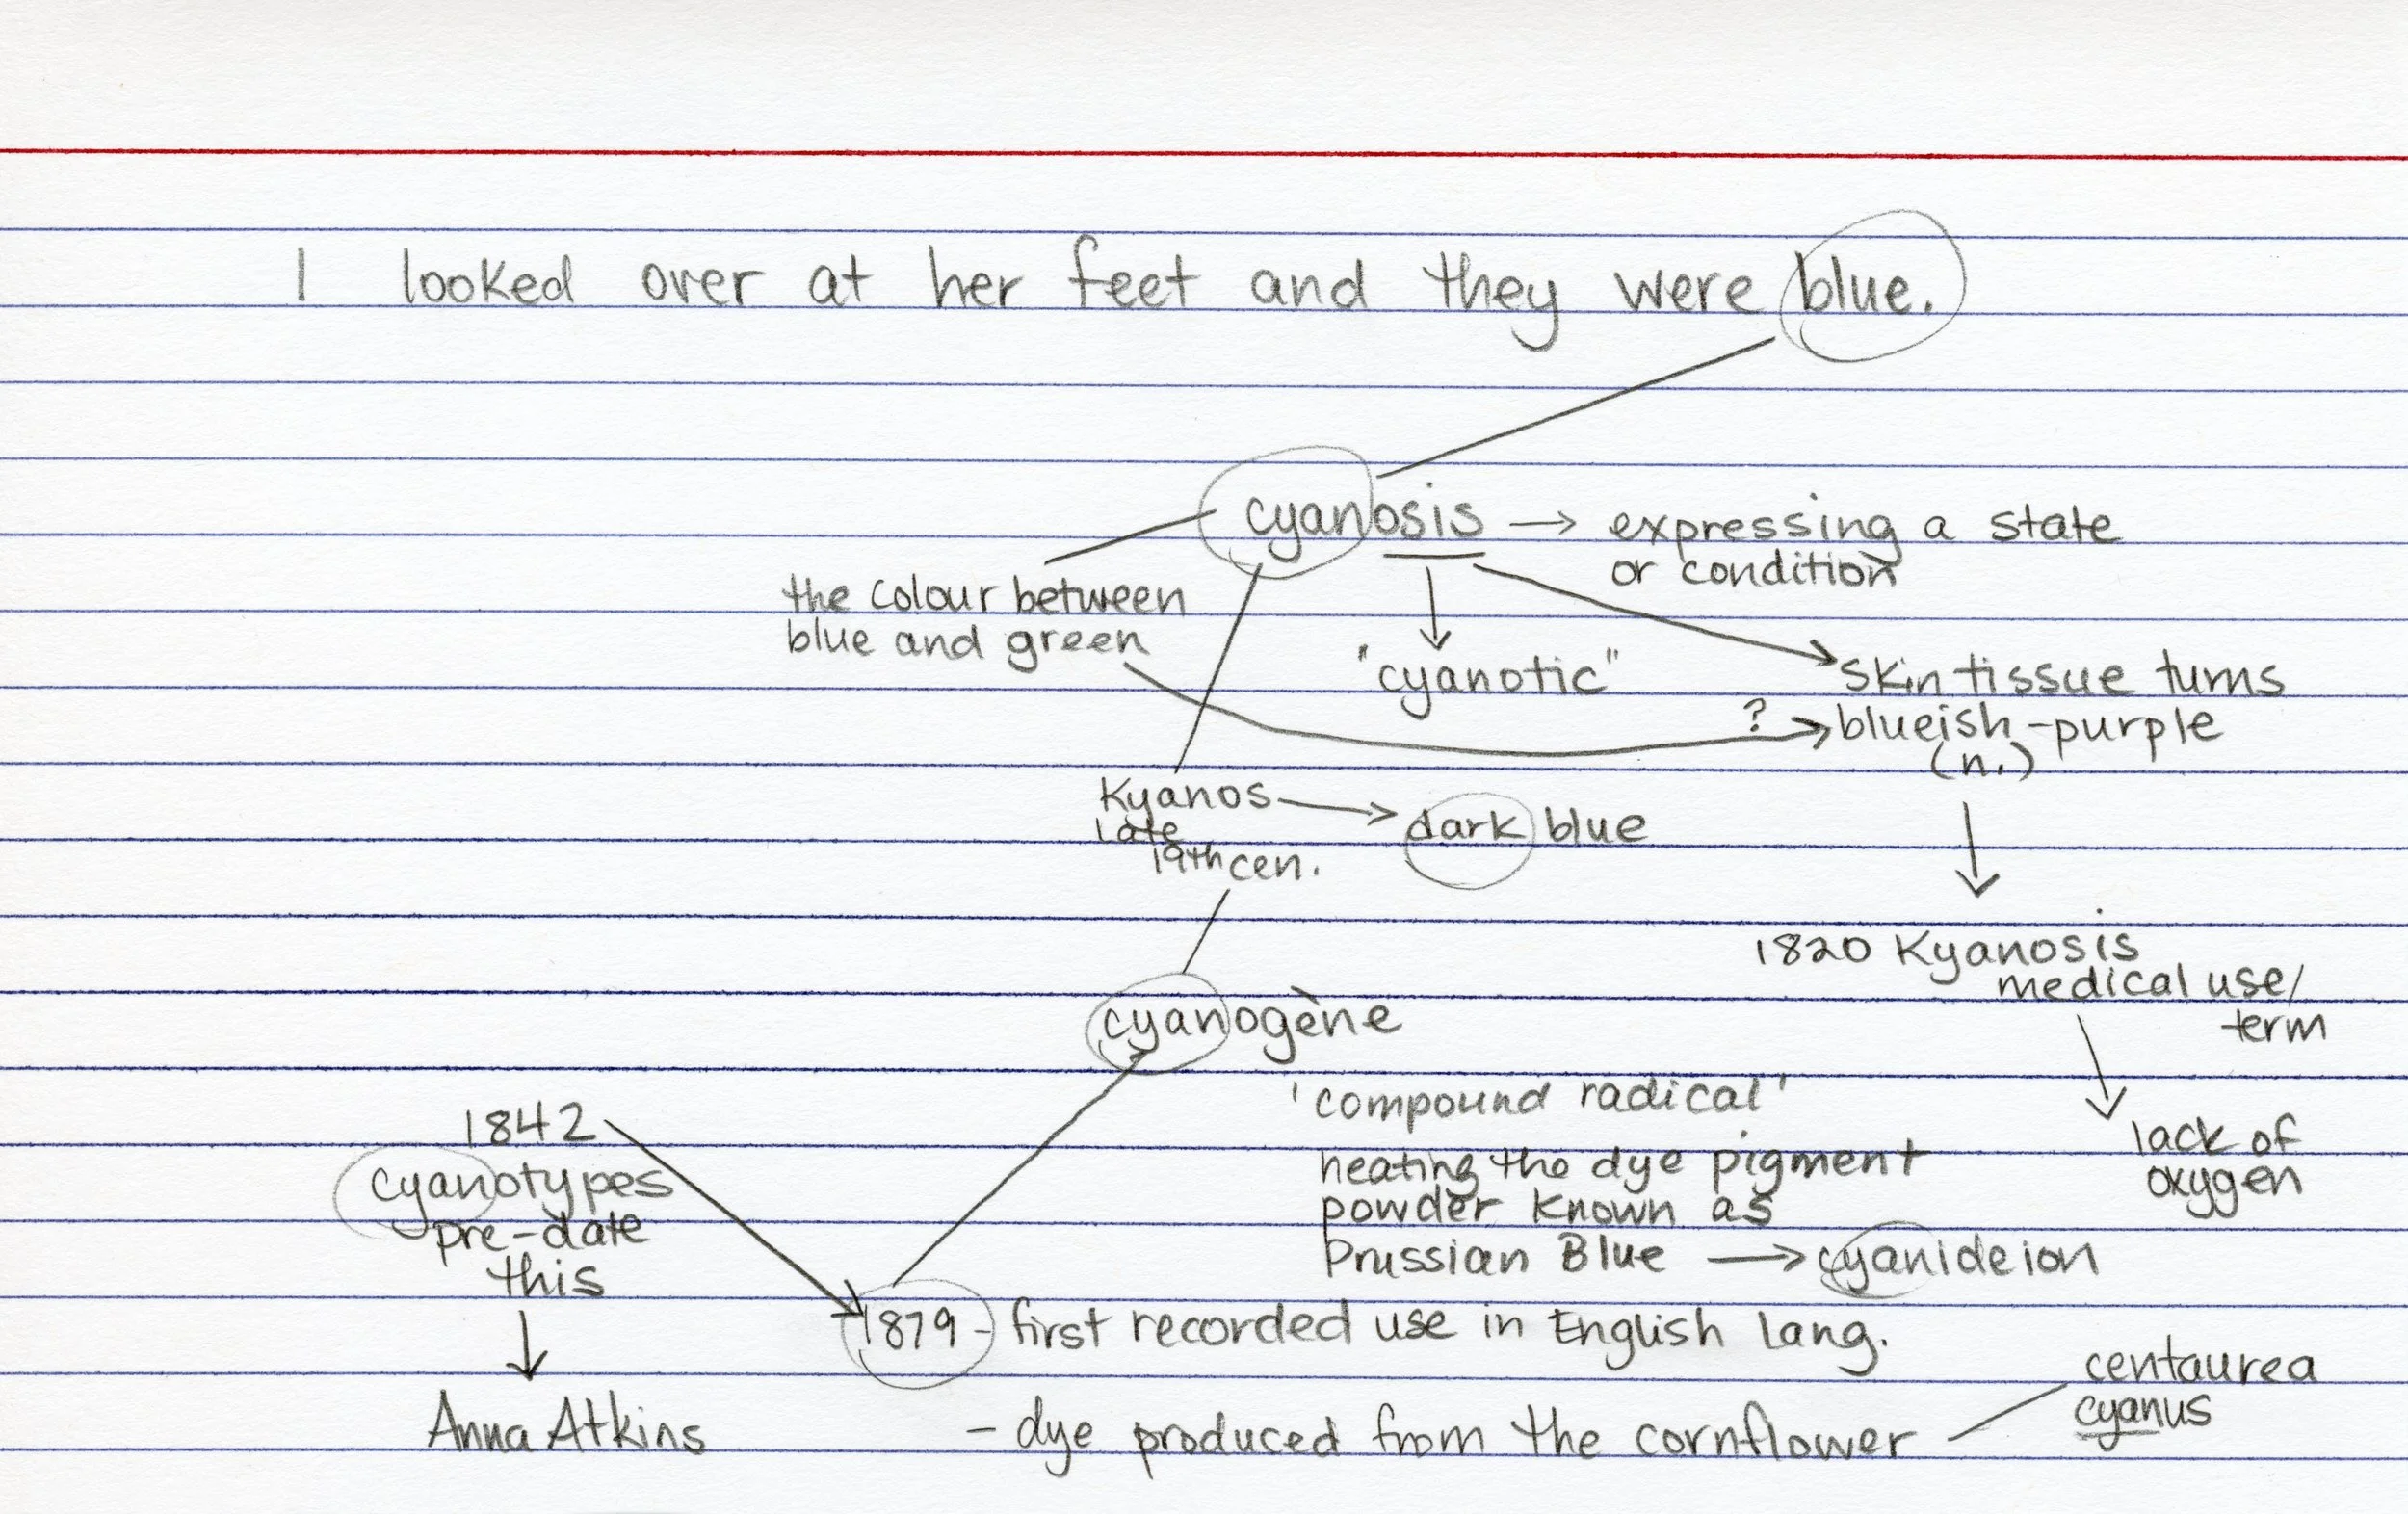 I looked over at her feet and they were blue.
cyanosis → expressing a state
or condition
the colour between
blue and green
"cyanotic"
skin tissue turns
? blueish-purple
(n.)
Kyanos → dark blue
late
19th cen.
1820 Kyanosis
medical use/
term
lack of
oxygen
cyanogène
'compound radical'
heating the dye pigment
powder known as
Prussian Blue → cyanide ion
1842
cyanotypes
pre-date
this
Anna Atkins
1879 - first recorded use in English lang.
- dye produced from the cornflower
centaurea
cyanus